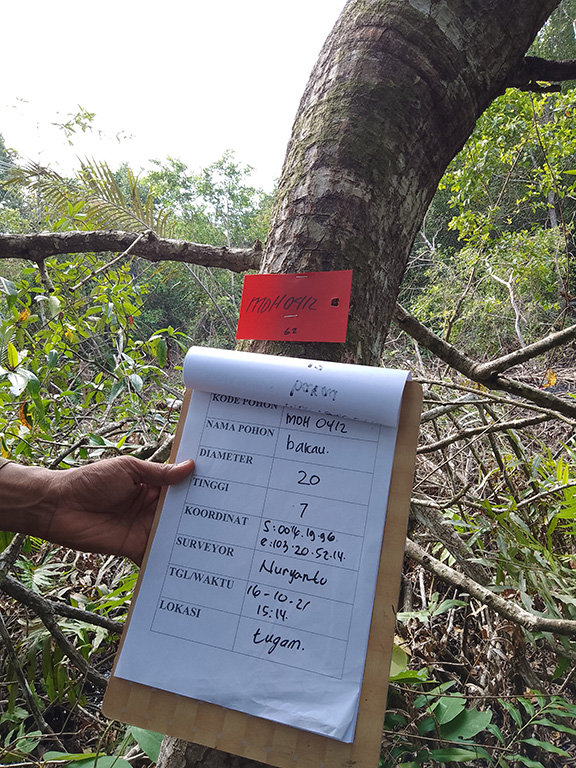 MDH 0412
62
KODE POHON MDH 0412
NAMA POHON bakau.
DIAMETER 20
TINGGI 7
KOORDINAT S:00'4.19.96.
e:103.20.52.14.
SURVEYOR Nuryanto
TGL/WAKTU 16-10-21
15:14.
LOKASI tugam.